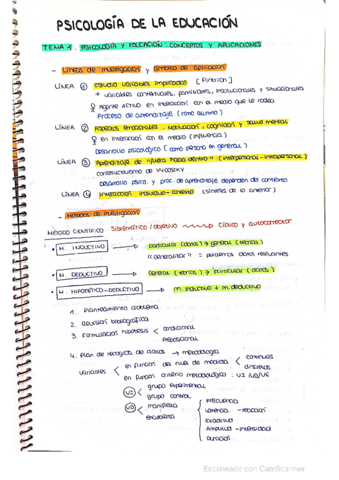 PSICOLOGÍA DE LA EDUCACIÓN
TEMA 1. PSICOLOGÍA Y EDUCACIÓN: CONCEPTOS Y APLICACIONES
- Líneas de investigación y ámbito de aplicación
LÍNEA ① Estudio variables implicadas
→ variables contextuales, familiares, institucionales y situacionales
agente activo en interacción con el medio que le rodea
Proceso de aprendizaje (como alumno)
LÍNEA ② Aspectos emocionales, motivación, cognición y salud mental
en interacción con el medio (influencia)
desarrollo psicológico (como persona en general)
LÍNEA ③ Aprendizaje de "fuera hacia dentro" (interpersonal - intrapersonal)
constructivismo de Vygotsky
desarrollo psico. y proc. de aprendizaje dependen del contexto
LÍNEA ④ Interacción individuo-contexto (síntesis de lo anterior)
- Métodos de investigación
MÉTODO CIENTÍFICO Sistemático / objetivo → cíclico y autocorrector
• M. INDUCTIVO → particular (datos) → general (teorías)
"generalizar" = perdemos datos relevantes
• M. DEDUCTIVO → general (teorías) → particular (datos)
• M. HIPOTÉTICO-DEDUCTIVO → m. inductivo + m. deductivo
1. Planteamiento problema
2. Revisión bibliográfica
3. Formulación hipótesis < condicional
proposicional
4. Plan de recogida de datos → metodología
variables < en función del nivel de medida < continuas
discretas
en función criterio metodológico: VI ND/VE
VI < grupo experimental
grupo control
VD < manifiesta
encubierta
frecuencia
latencia - reacción
exactitud
Amplitud - intensidad
duración
Escaneado con CamScanner